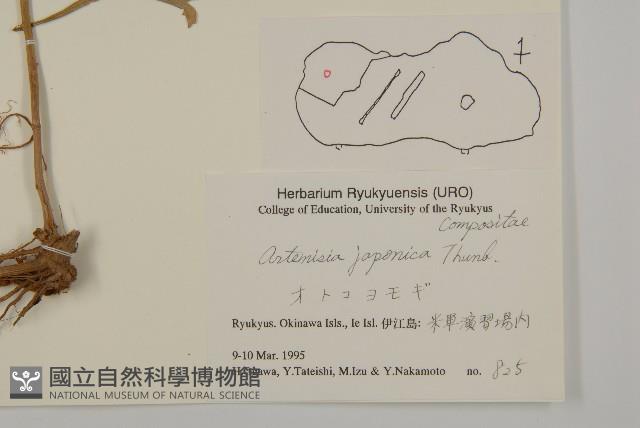 Herbarium Ryukyuensis (URO)
College of Education, University of the Ryukyus
Compositae
Artemisia japonica Thunb.
オトコヨモギ
Ryukyus. Okinawa Isls., Ie Isl. 伊江島: 米軍演習場内
9-10 Mar. 1995
Y.Tateishi, M.Izu & Y.Nakamoto no. 825
國立自然科學博物館
NATIONAL MUSEUM OF NATURAL SCIENCE